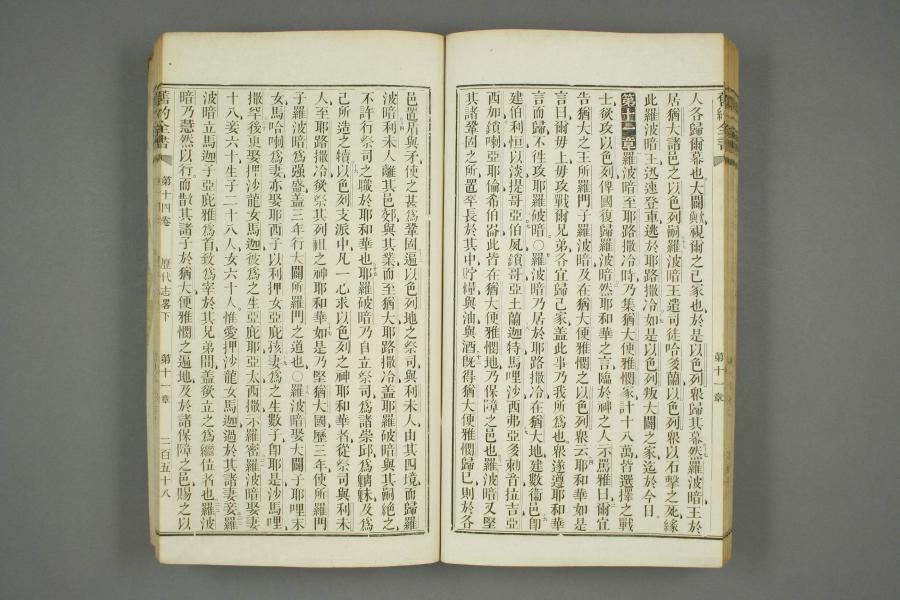 人各歸爾幕也大闢歟視爾之己家也於是以色列衆歸其幕然羅波暗王於
居猶大諸邑之以色列嗣羅波暗王遣司徒哈多蘭以色列衆以石擊之死緣
此羅波暗王迅速登車逃於耶路撒冷如是以色列叛大闢之家迄於今日
第十一章羅波暗至耶路撒冷時乃集猶大便雅憫家計十八萬皆選擇之戰
士欲攻以色列俾國復歸羅波暗然耶和華之言臨於神之人示馬雅曰爾宜
告猶大之王所羅門子羅波暗及在猶大便雅憫之以色列衆云耶和華如是
言曰爾毋上毋攻戰爾兄弟各宜歸己家蓋此事乃我所爲也衆遂遵耶和華
言而歸不往攻耶羅破暗○羅波暗乃居於耶路撒冷在猶大地建數衞邑卽
建伯利恒以淡提哥亞伯夙鎖哥亞土蘭迦特馬哩沙西弗亞麥勑音拉吉亞
西加鎖喇亞耶倫希伯崙此皆在猶大便雅憫地乃保障之邑也羅波暗又堅
其諸鞏固之所置卒長於其中貯糧與油與酒旣得猶大便雅憫歸已則於各
舊約全書
第十一章
邑置盾與矛使之甚爲鞏固遍以色列地之祭司與利未人由其四境而歸羅
波暗利未人離其邑郊與其業而至猶大耶路撒冷蓋耶羅破暗與其嗣絶之
不許行祭司之職於耶和華也耶羅破暗乃自立祭司爲諸崇邱爲魑魅及爲
己所造之犢以色列支派中凡一心求以色列之神耶和華者從祭司與利未
人至耶路撒冷欲祭其列祖之神耶和華如是乃堅猶大國歷三年使所羅門
子羅波暗爲强盛蓋三年行大闢所羅門之道也○羅波暗娶大闢子耶哩末
女馬哈喇爲妻亦娶耶西子以利押女亞庇孩妻爲之生數子卽耶是沙馬哩
撒罕後更娶押沙龍女馬迦彼爲之生亞庇耶亞太西撒示羅密羅波暗娶妻
十八妾六十生子二十八人女六十人惟愛押沙龍女馬迦過於其諸妻妾羅
波暗立馬迦子亞庇雅爲首致爲宰於其兄弟間蓋欲立之爲繼位者也羅波
暗乃慧然以行而散其諸子於猶大便雅憫之遍地及於諸保障之邑賜之以
舊約全書
第十四卷
歷代志畧下
第十一章
二百五十八